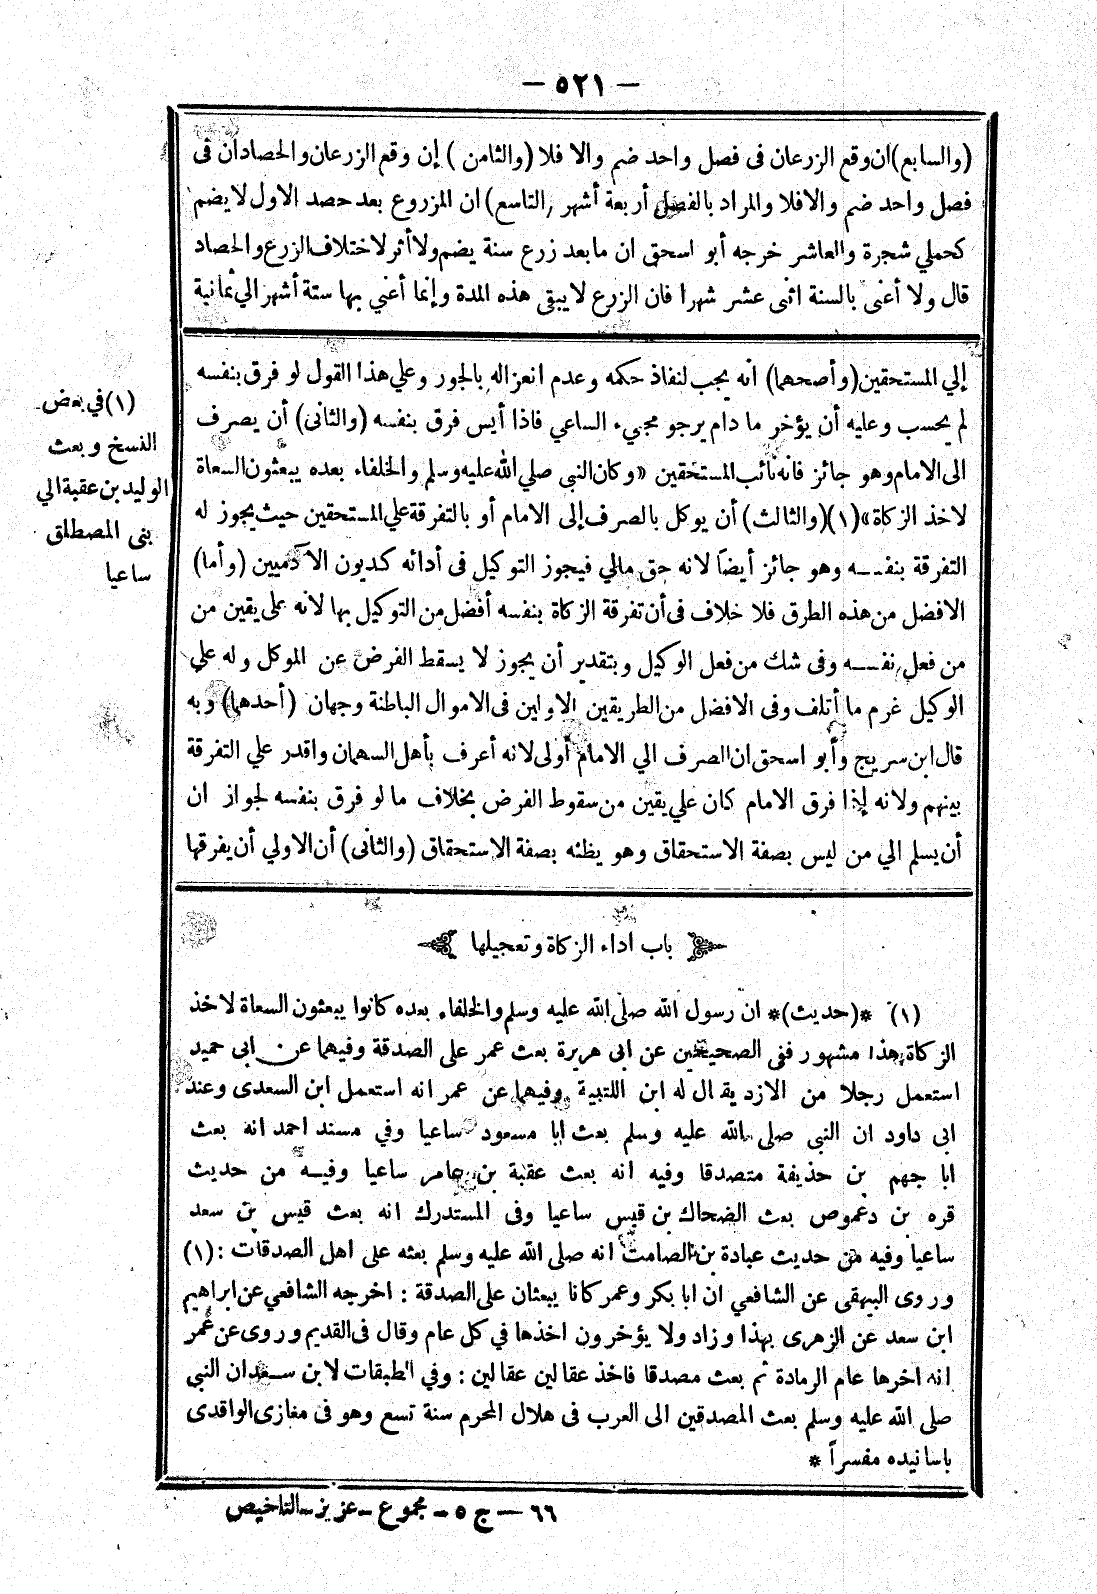 — ٥٢١ —
(والسابع) ان وقع الزرعان فى فصل واحد ضم والا فلا (والثامن) إن وقع الزرعان والحصادان فى
فصل واحد ضم والافلا والمراد بالفصل أربعة أشهر (التاسع) ان المزروع بعد حصد الاول لا يضم
كحملي شجرة والعاشر خرجه أبو اسحق ان ما بعد زرع سنة يضم ولا أثر لاختلاف الزرع والحصاد
قال ولا أعنى بالسنة اثنى عشر شهرا فان الزرع لا يبقى هذه المدة وإنما أعني بها ستة أشهر الي ثمانية
إلي المستحقين (وأصحهما) انه يجب لنفاذ حكمه وعدم انعزاله بالجور وعلي هذا القول لو فرق بنفسه
لم يحسب وعليه أن يؤخر ما دام يرجو مجيء الساعي فاذا أيس فرق بنفسه (والثانى) أن يصرف
الى الامام وهو جائز فانه نائب المستحقين «وكان النبى صلي الله عليه وسلم والخلفاء بعده يبعثون السعاة
لاخذ الزكاة» (١) (والثالث) أن يوكل بالصرف إلى الامام أو بالتفرقة علي المستحقين حيث يجوز له
التفرقة بنفسه وهو جائز أيضاً لانه حق مالي فيجوز التوكيل فى أدائه كديون الآدميين (وأما)
الافضل من هذه الطرق فلا خلاف فى أن تفرقة الزكاة بنفسه أفضل من التوكيل بها لانه على يقين من
من فعل نفسه وفى شك من فعل الوكيل وبتقدير أن يجوز لا يسقط الفرض عن الموكل وله علي
الوكيل غرم ما أتلف وفى الافضل من الطريقين الاولين فى الاموال الباطنة وجهان (أحدهما) وبه
قال ابن سريج وأبو اسحق ان الصرف الي الامام أولى لانه أعرف بأهل السهمان واقدر علي التفرقة
بينهم ولانه إذا فرق الامام كان علي يقين من سقوط الفرض بخلاف ما لو فرق بنفسه لجواز ان
أن يسلم الي من ليس بصفة الاستحقاق وهو يظنه بصفة الاستحقاق (والثانى) أن الاولي أن يفرقها
(١) في بعض
النسخ وبعث
الوليد بن عقبة الي
بنى المصطلق
ساعيا
باب اداء الزكاة وتعجيلها
(١) *(حديث)* ان رسول الله صلى الله عليه وسلم والخلفاء بعده كانوا يبعثون السعاة لاخذ
الزكاة هذا مشهور ففى الصحيحين عن ابى هريرة بعث عمر على الصدقة وفيهما عن ابى حميد
استعمل رجلا من الازد يقال له ابن اللتبية وفيهما عن عمر انه استعمل ابن السعدى وعند
ابى داود ان النبى صلى الله عليه وسلم بعث ابا مسعود ساعيا وفي مسند احمد انه بعث
ابا جهم بن حذيفة متصدقا وفيه انه بعث عقبة بن عامر ساعيا وفيه من حديث
قره بن دعموص بعث الضحاك بن قيس ساعيا وفى المستدرك انه بعث قيس بن سعد
ساعيا وفيه من حديث عبادة بن الصامت انه صلى الله عليه وسلم بعثه على اهل الصدقات : (١)
وروى البيهقى عن الشافعي ان ابا بكر وعمر كانا يبعثان على الصدقة : اخرجه الشافعي عن ابراهيم
ابن سعد عن الزهرى بهذا وزاد ولا يؤخرون اخذها في كل عام وقال فى القديم وروى عن عمر
انه اخرها عام الرمادة ثم بعث مصدقا فاخذ عقالين عقالين : وفي الطبقات لابن سعد ان النبي
صلى الله عليه وسلم بعث المصدقين الى العرب فى هلال المحرم سنة تسع وهو فى مغازى الواقدى
باسانيده مفسراً *
٦٦ — ج ٥ — مجموع — عزيز — التلخيص